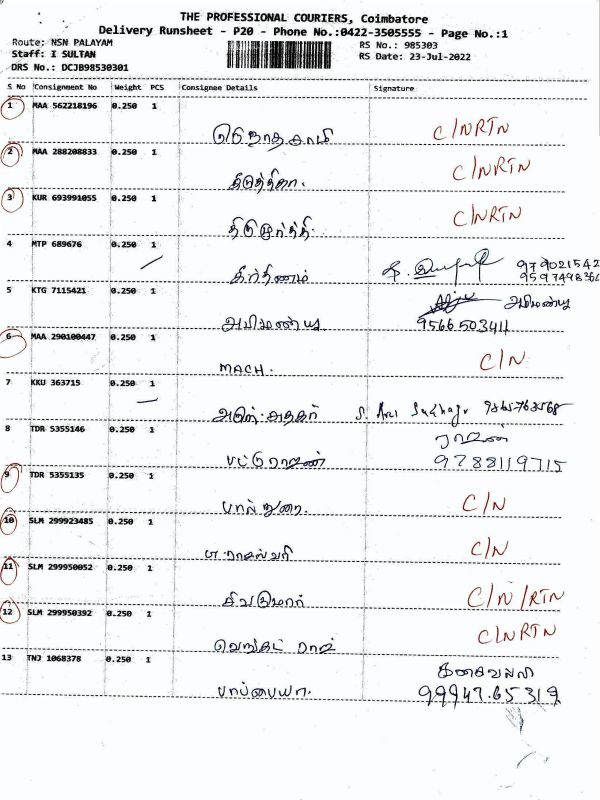 THE PROFESSIONAL COURIERS, Coimbatore
Delivery Runsheet - P20 - Phone No.:0422-3505555 - Page No.:1
Route: NSN PALAYAM
RS No.: 985303
Staff: I SULTAN
RS Date: 23-Jul-2022
DRS No.: DCJB98530301
S No Consignment No Weight PCS Consignee Details Signature
1 MAA 562218196 0.250 1
C/NRTN
2 MAA 288208833 0.250 1
C/NRTN
3 KUR 693991055 0.250 1
C/NRTN
திருமூர்த்தி
4 MTP 689676 0.250 1
979021542
5 KTG 7115421 0.250 1
அபிமன்யு
அபிமன்யு
9566503411
6 MAA 290100447 0.250 1
MACH. C/N
7 KKU 363715 0.250 1
8 TDR 5355146 0.250 1
ராஜன்
9788119715
9 TDR 5355135 0.250 1
பால்துரை. C/N
10 SLM 299923485 0.250 1
C/N
11 SLM 299950052 0.250 1
சிவகுமார் C/N/RTN
12 SLM 299950392 0.250 1
வெங்கட் ராஜ் C/NRTN
13 TNJ 1068378 0.250 1
பாப்பையா. 99947.65319